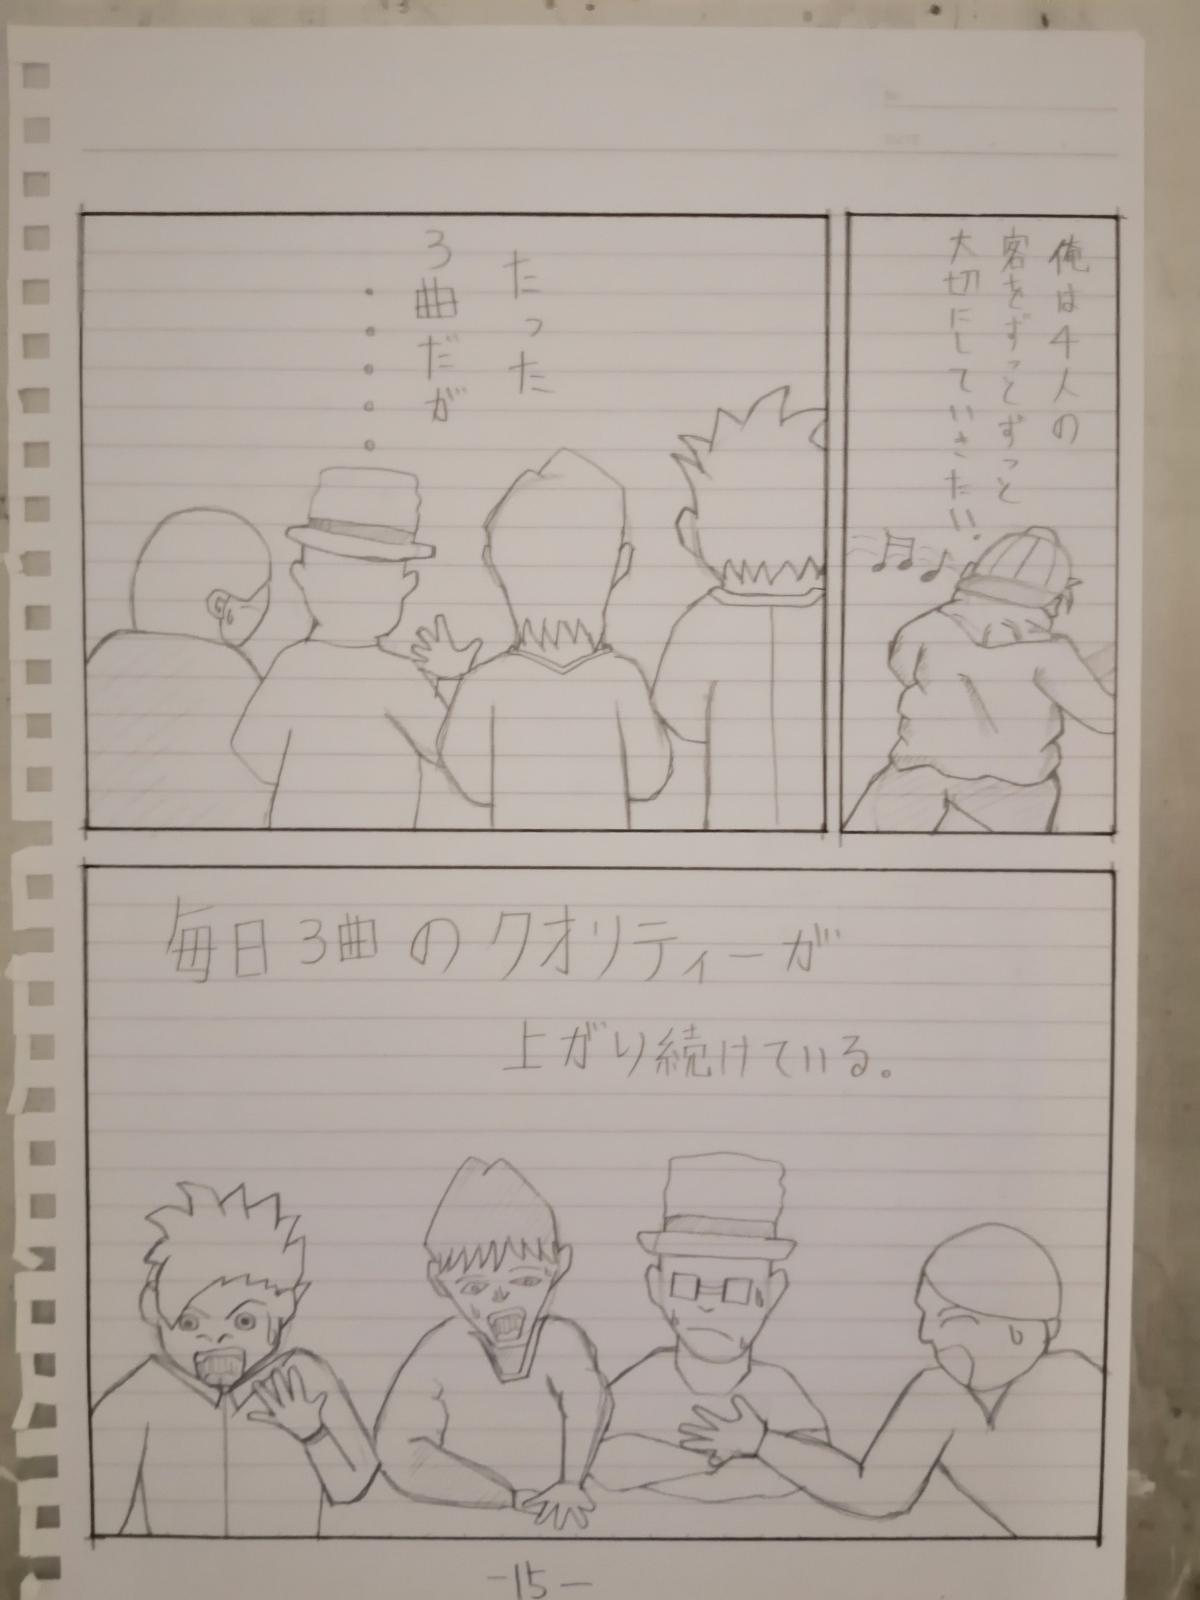 俺は4人の
客をずっとずっと
大切にしていきたい。
たった
3曲だが
・・・・・
毎日3曲のクオリティーが
上がり続けている。
-15-